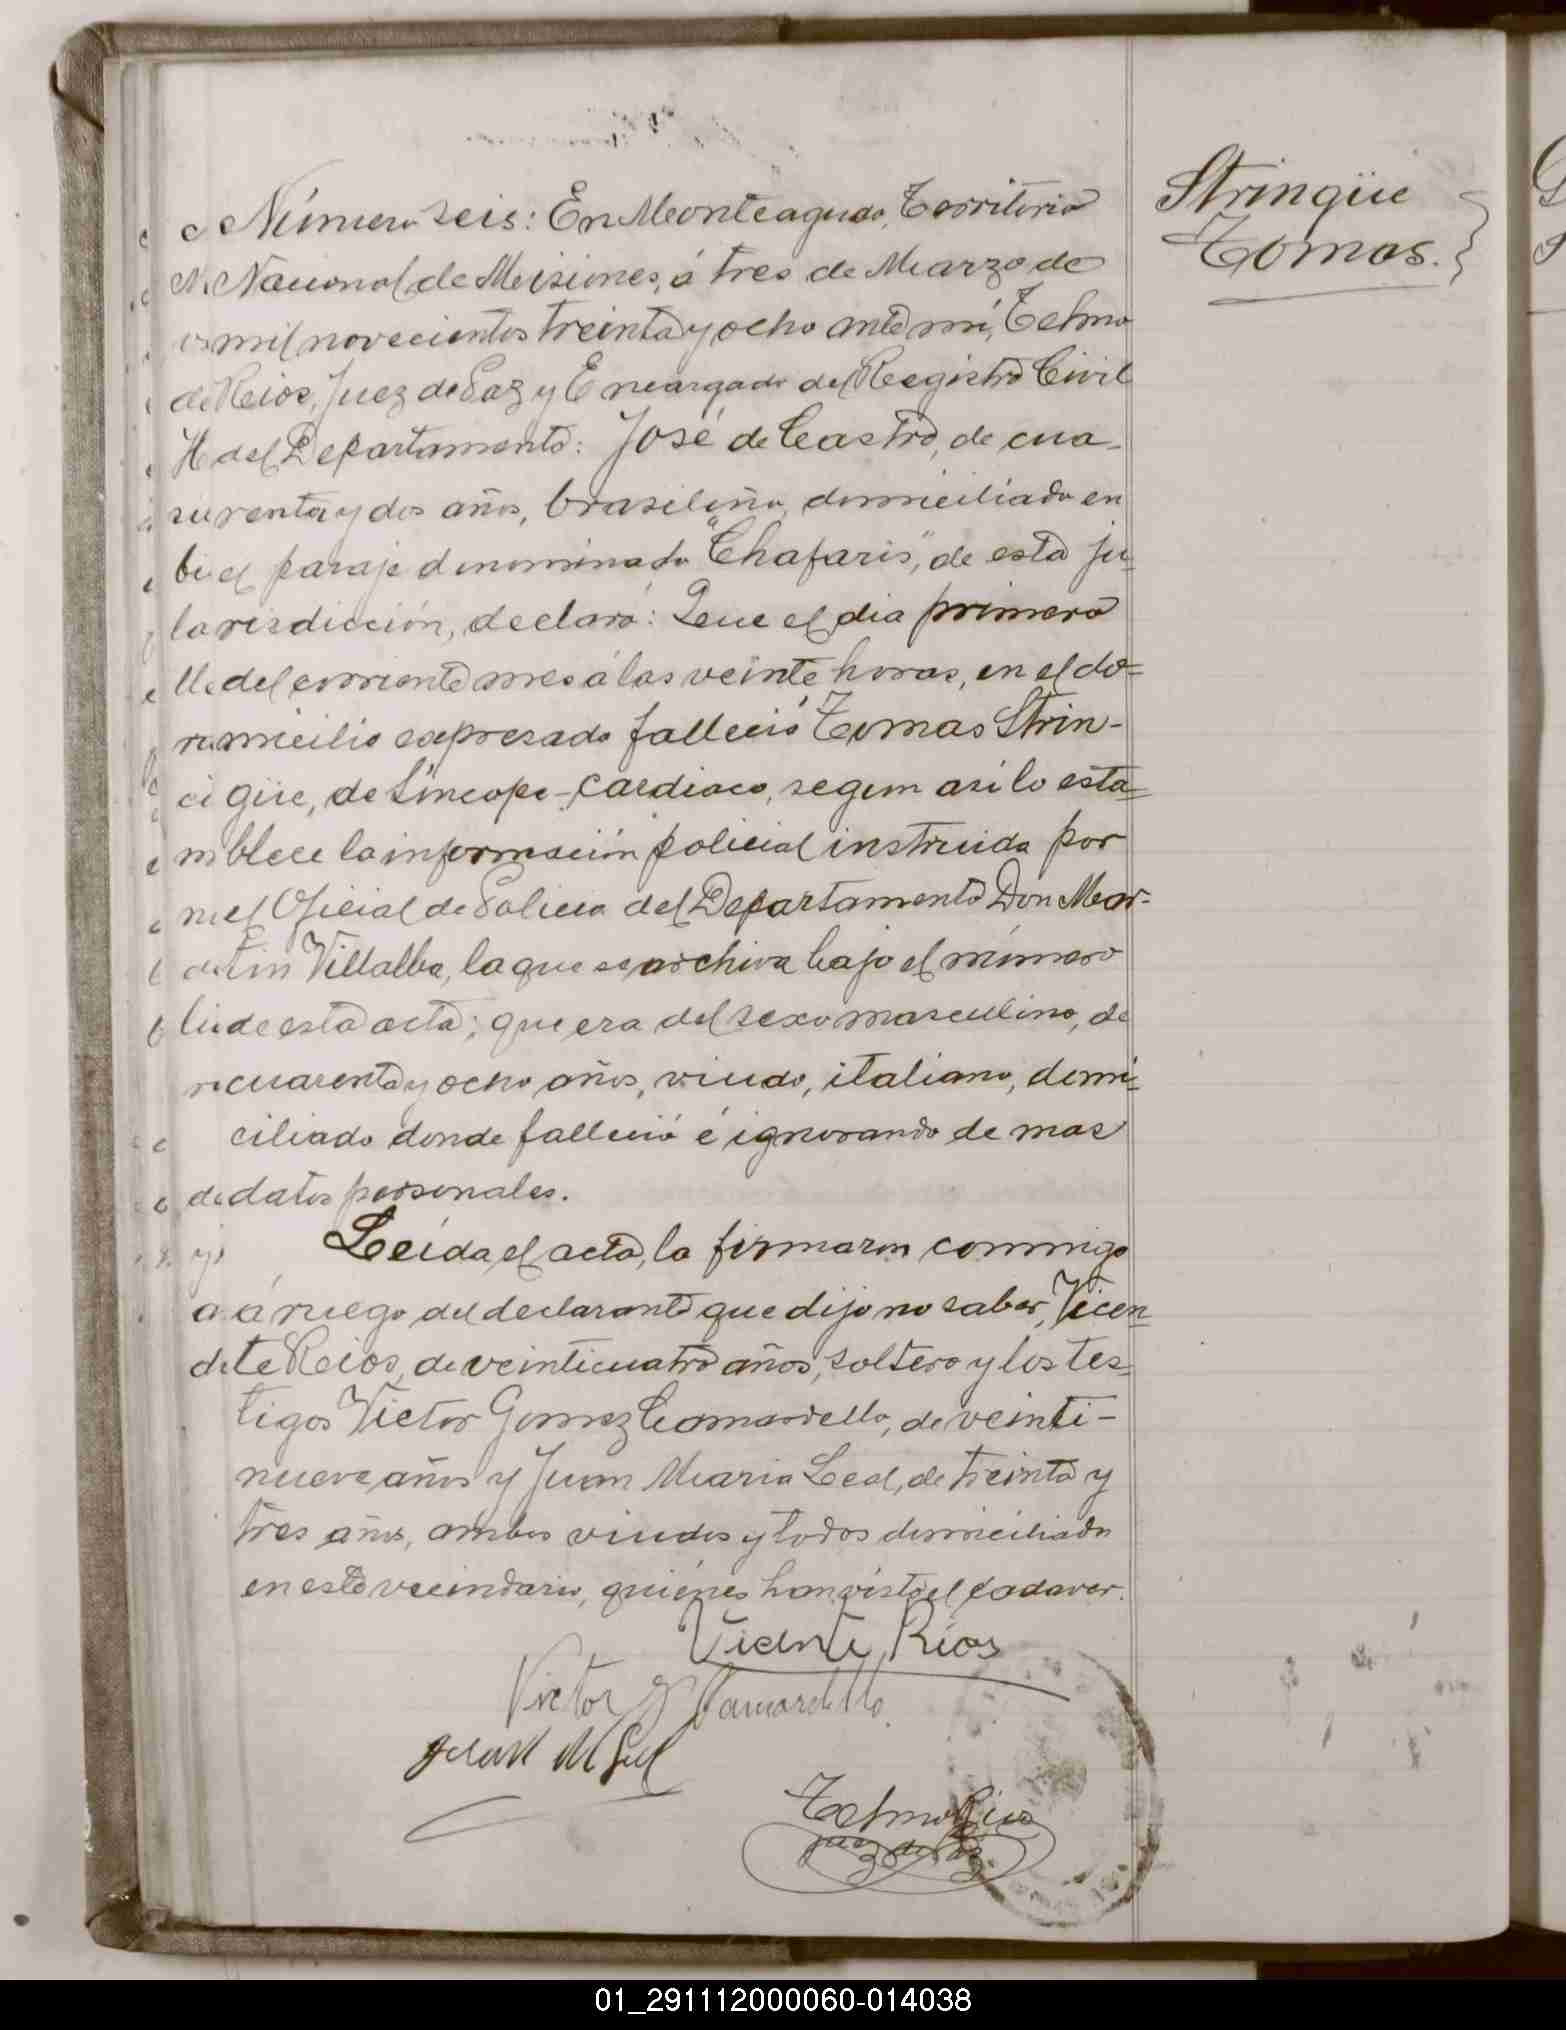 Stringüe
Tomas.
Número seis: En Monteagudo, Territorio
Nacional de Misiones, á tres de Marzo de
mil novecientos treinta y ocho ante mí, Telmo
Rios, Juez de Paz y Encargado del Registro Civil
del Departamento: José de Castro, de cua-
renta y dos años, brasileño, domiciliado en
el paraje denominado "Chafaris", de esta ju-
risdicción, declaró: Que el dia primero
del corriente mes á las veinte horas, en el do=
micilio expresado falleció Tomas Strin-
güe, de Síncope-cardiaco, segun asi lo esta=
blece la información policial instruida por
el Oficial de Policia del Departamento Don Mar-
tin Villalba, la que se archiva bajo el número
de esta acta; que era del sexo masculino, de
cuarenta y ocho años, viudo, italiano, domi-
ciliado donde falleció é ignorando de mas
datos personales.
Leída el acta, la firmaron conmigo
á ruego del declarante que dijo no saber, Vicen=
te Rios, de veinticuatro años, soltero y los tes-
tigos Victor Gomez Camardello, de veinti-
nueve años y Juan Maria Leal, de treinta y
tres años, ambos viudos y todos domiciliado
en este vecindario, quiénes han visto el cadaver.
Vicente Rios
Victor G Camardello
Juan M Leal
Telmo Rios
Juez de Paz.
01_291112000060-014038